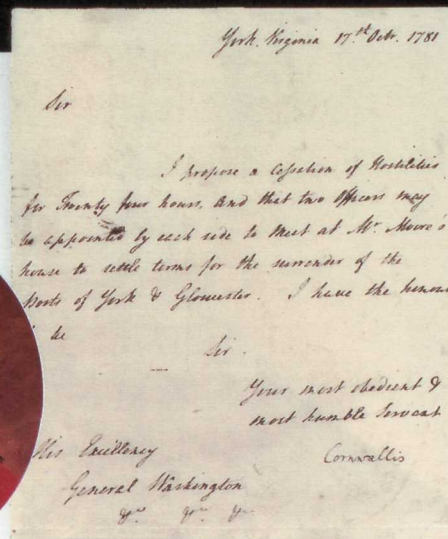 York, Virginia 17th Octr. 1781
Sir
I propose a Cessation of Hostilities
for Twenty four hours, and that two Officers may
be appointed by each side to meet at Mr. Moore's
house to settle terms for the surrender of the
Posts of York & Gloucester. I have the honour
to be
Sir
Your most obedient &
most humble Servant
Cornwallis
His Excellency
General Washington
&c. &c. &c.